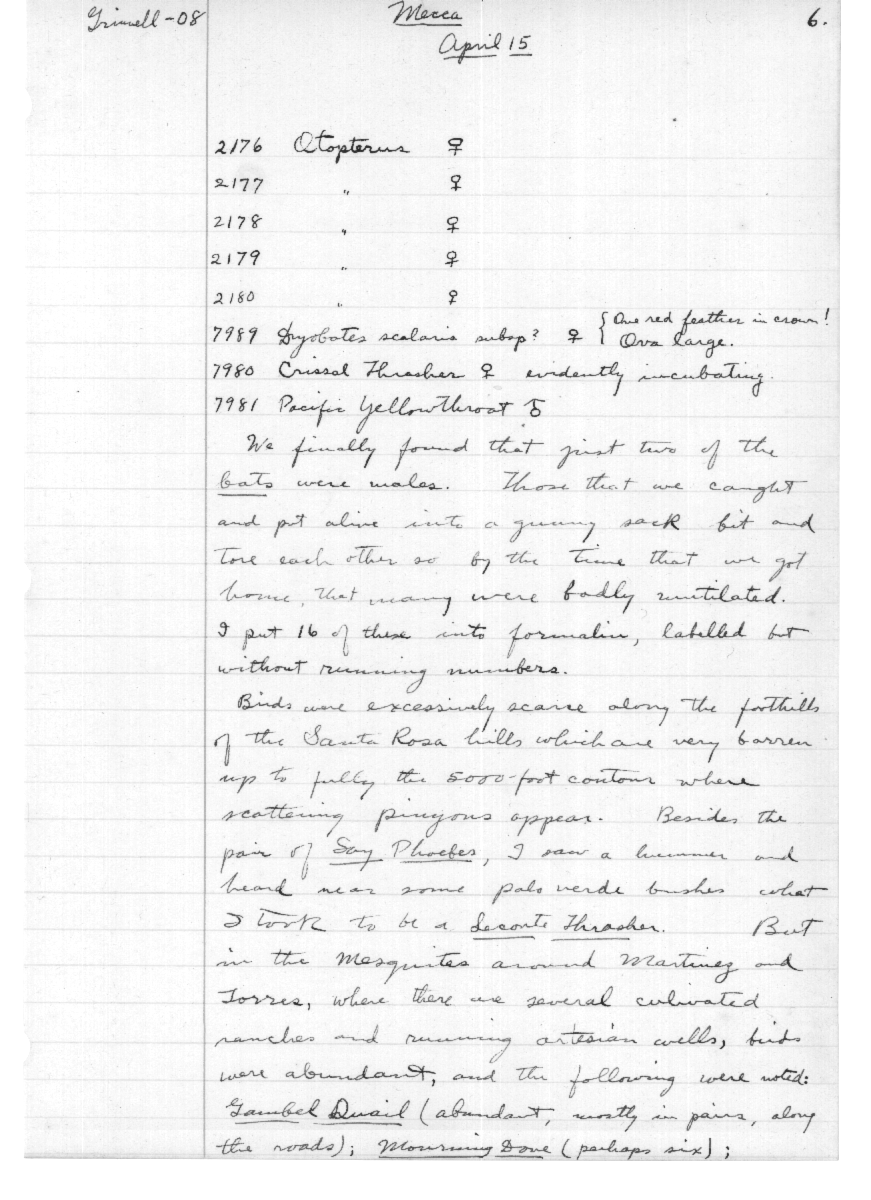 Grinnell-08
Mecca
6.
April 15
2176 Otopterus ♀
2177 " ♀
2178 " ♀
2179 " ♀
2180 " ♀
7989 Dryobates scalaris subsp? ♀ { One red feather in crown!
Ova large.
7980 Crissal Thrasher ♀ evidently incubating.
7981 Pacific Yellowthroat ♂
We finally found that just two of the
bats were males. Those that we caught
and put alive into a gunny sack bit and
tore each other so by the time that we got
home, that many were badly mutilated.
I put 16 of these into formalin, labelled but
without running numbers.
Birds were excessively scarce along the foothills
of the Santa Rosa hills which are very barren
up to fully the 5000-foot contour where
scattering pinyons appear. Besides the
pair of Say Phoebes, I saw a hummer and
heard near some palo verde bushes what
I took to be a Leconte Thrasher. But
in the Mesquites around Martinez and
Torres, where there are several cultivated
ranches and running artesian wells, birds
were abundant, and the following were noted:
Gambel Quail (abundant, mostly in pairs, along
the roads); Mourning Dove (perhaps six);